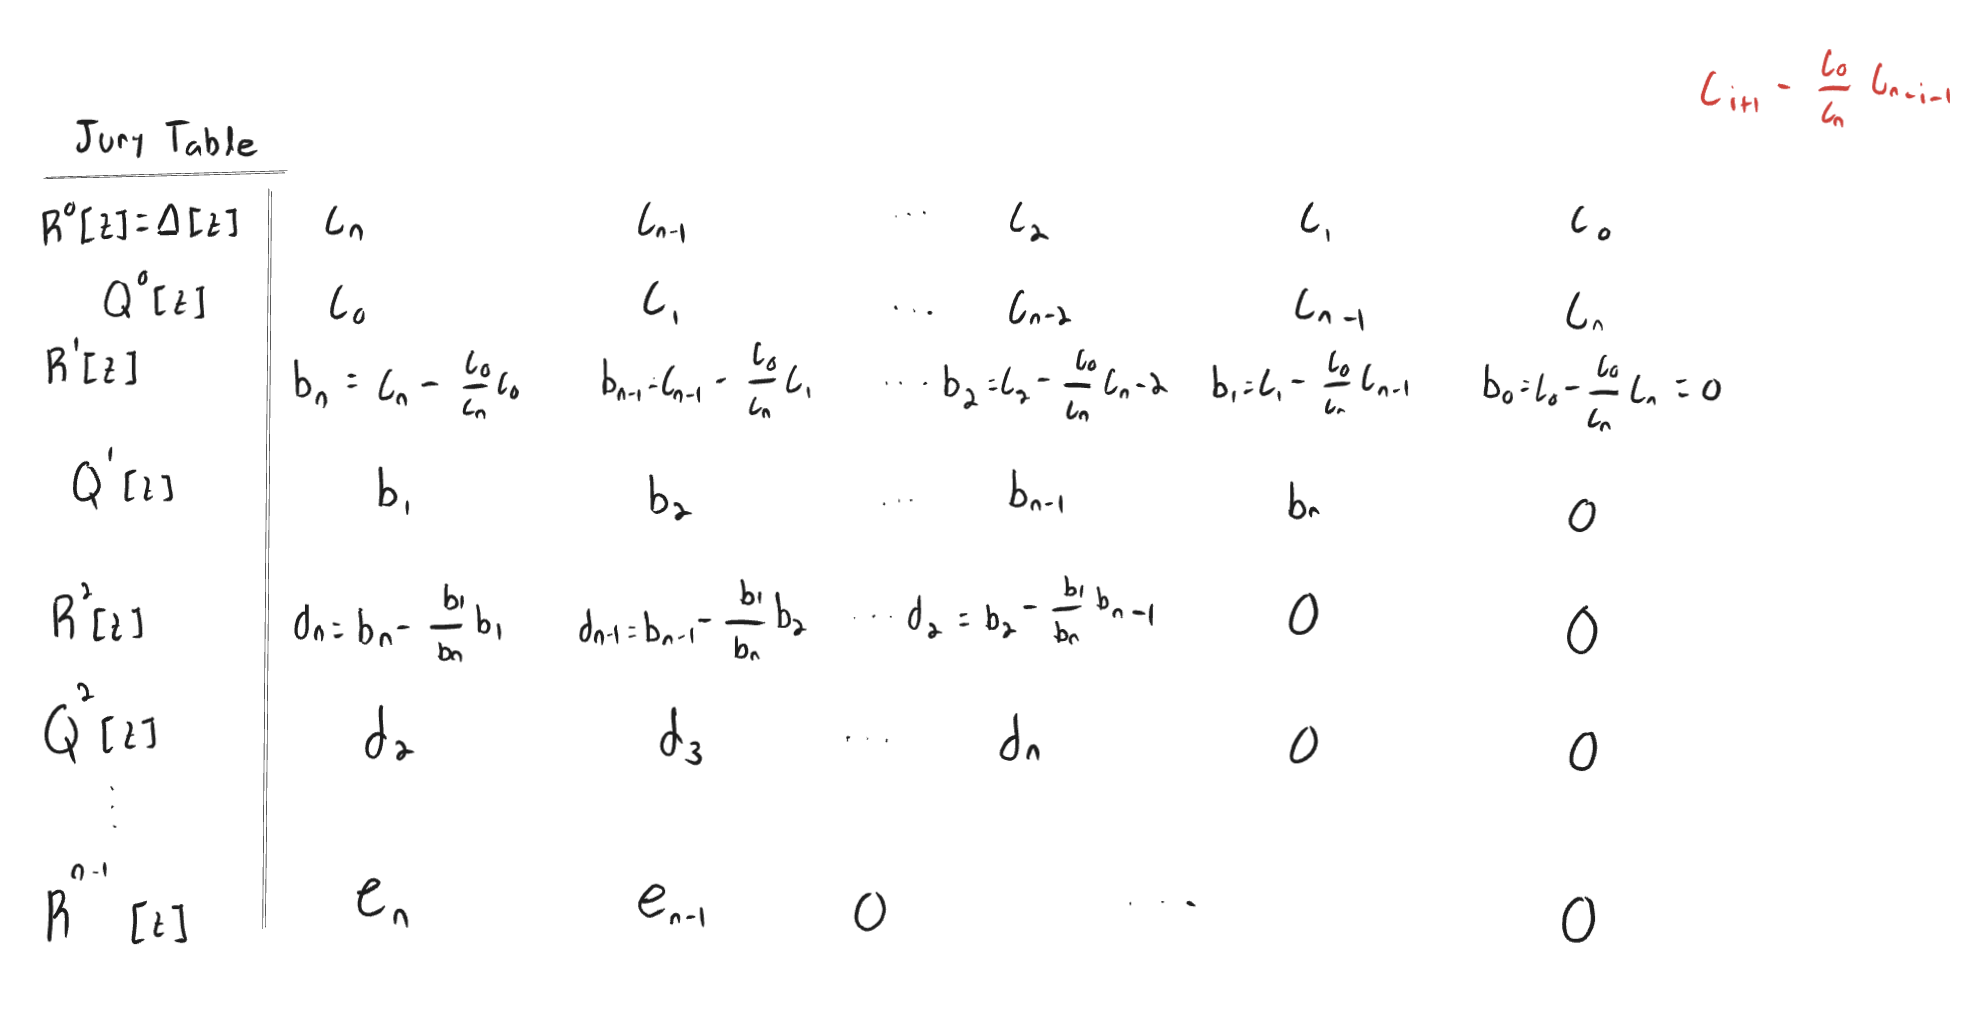 c_{i+1} - \frac{c_0}{c_n} c_{n-i-1}
Jury Table
R^0[z]=Δ[z] c_n c_{n-1} ... c_2 c_1 c_0
Q^0[z] c_0 c_1 ... c_{n-2} c_{n-1} c_n
R^1[z] b_n = c_n - \frac{c_0}{c_n} c_0 b_{n-1} = c_{n-1} - \frac{c_0}{c_n} c_1 ... b_2 = c_2 - \frac{c_0}{c_n} c_{n-2} b_1 = c_1 - \frac{c_0}{c_n} c_{n-1} b_0 = c_0 - \frac{c_0}{c_n} c_n = 0
Q^1[z] b_1 b_2 ... b_{n-1} b_n 0
R^2[z] d_n = b_n - \frac{b_1}{b_n} b_1 d_{n-1} = b_{n-1} - \frac{b_1}{b_n} b_2 ... d_2 = b_2 - \frac{b_1}{b_n} b_{n-1} 0 0
Q^2[z] d_2 d_3 ... d_n 0 0
⋮
R^{n-1}[z] e_n e_{n-1} 0 ... 0